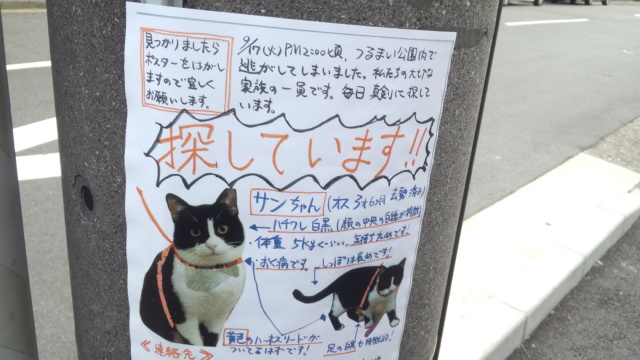 見つかりましたら
ポスターをはがし
ますので宜しく
お願いします。
9/17(火)PM2:00頃、つるまい公園内で
逃がしてしまいました。私たちの大切な
家族の一員です。毎日真剣に探して
います。
探しています!!
サンちゃん (オス 3才6ヶ月 去勢済み)
ハチワレ 白黒 (顔の中央の白線が特徴)
・体重 5kgくらい。
・おく病です。
しっぽは長めです!
黄色のハーネスリードが
ついてるはずです!
足の白
≪連絡先≫